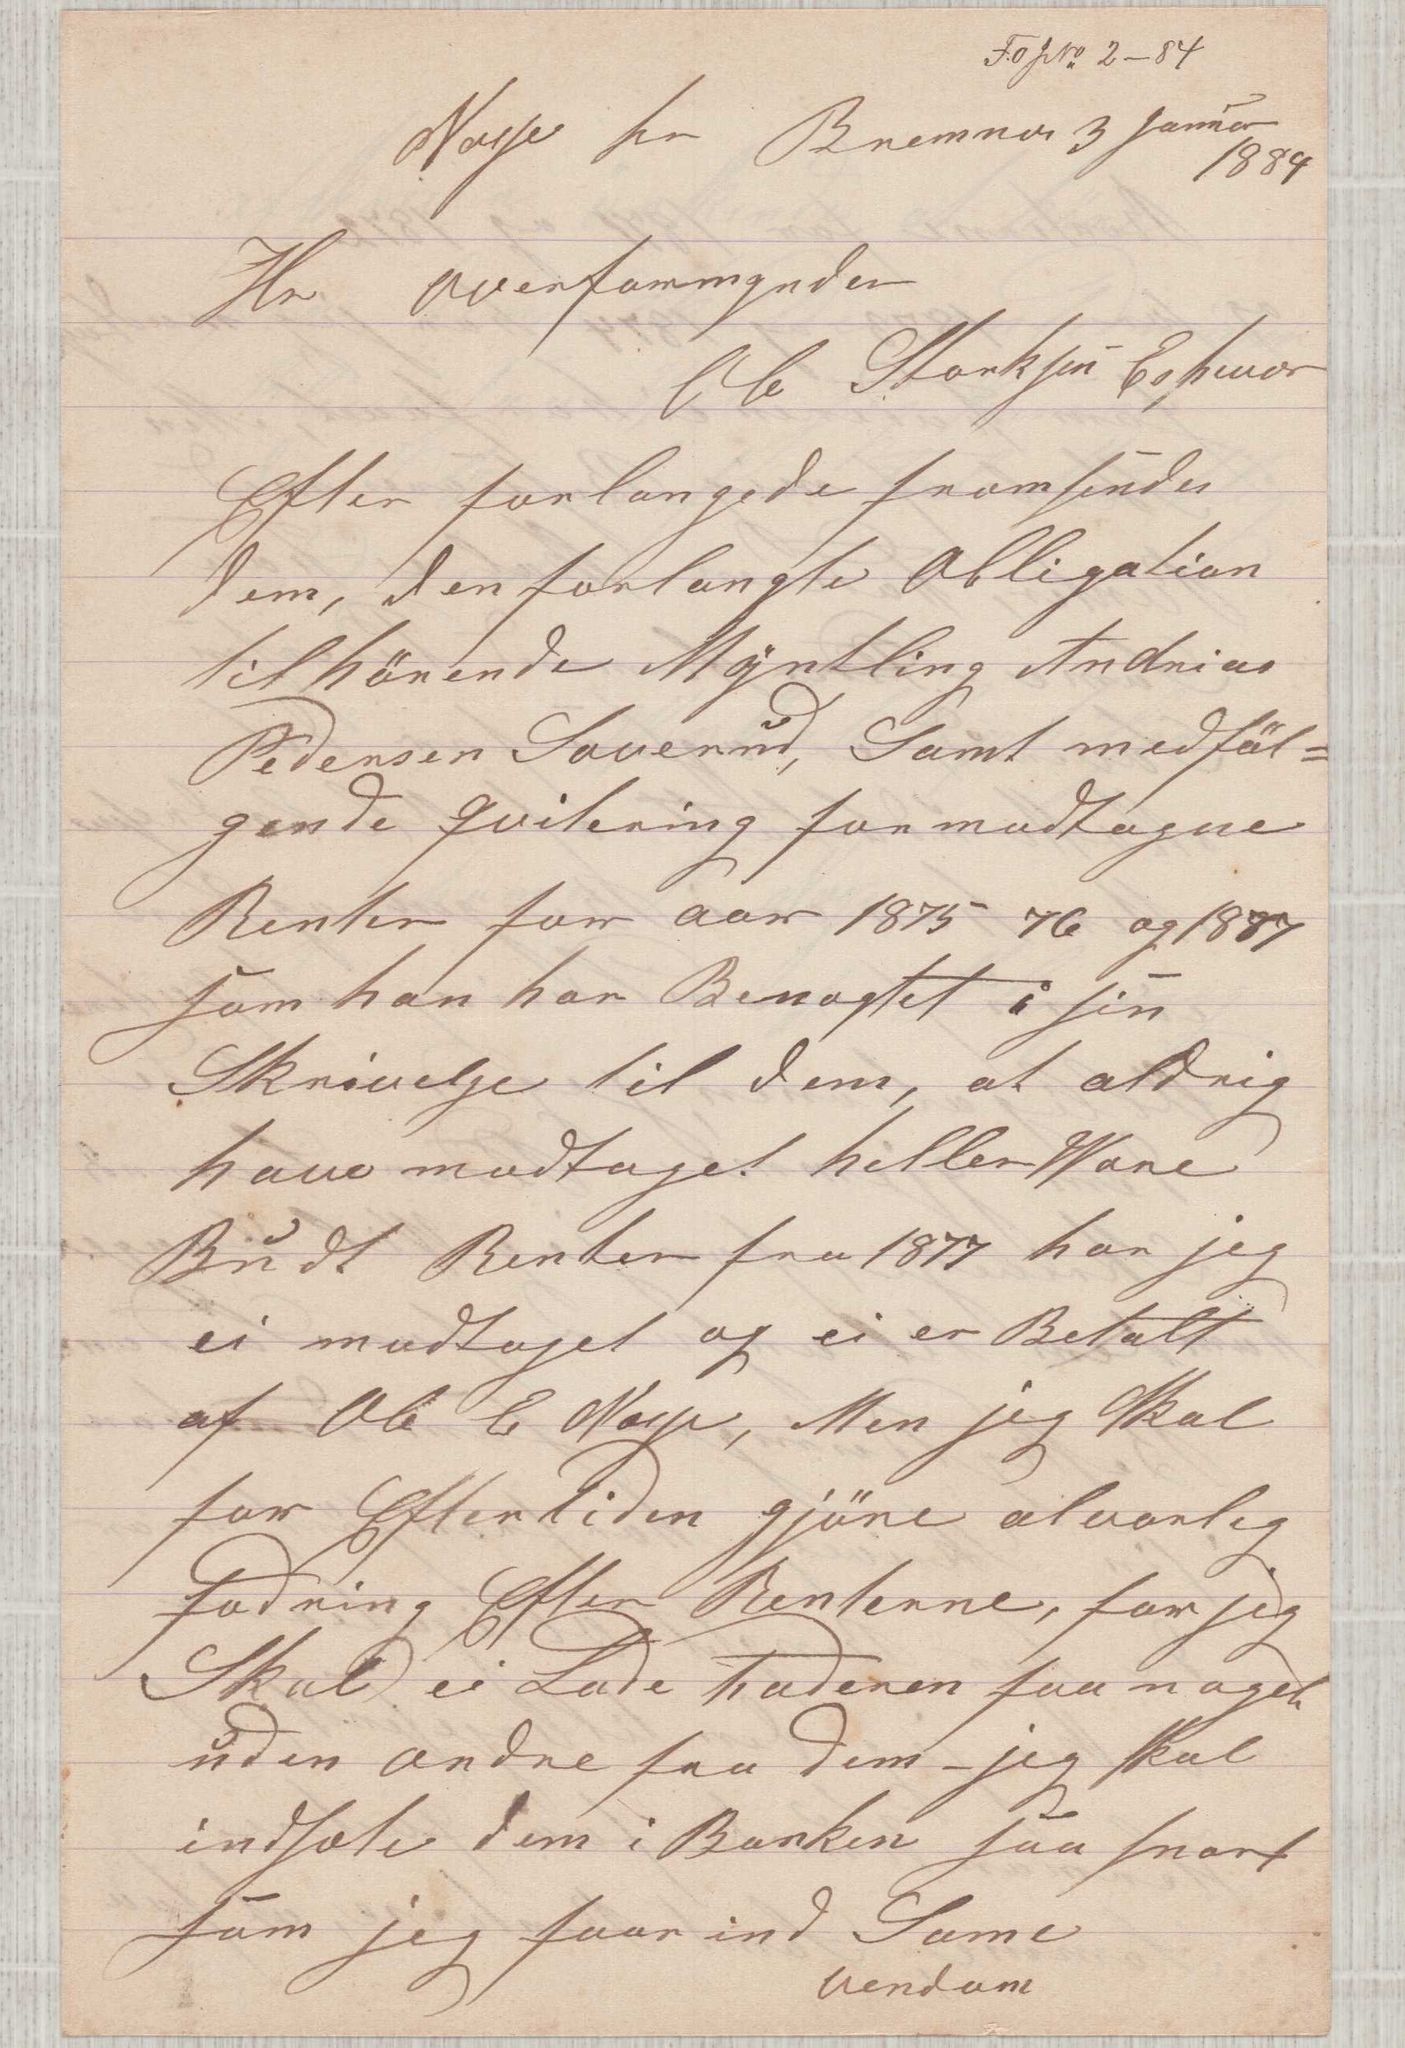 F.O.J.No 2-84
Vage pr Bremnes 3 Januar
1884
Hr overformynder
Ole Storksen Eshuvor
Efter forlangede fremsendes
dem, den forlangte Obligation
tilhörende Myntling Andreas
Pedersen Soverud, Samt medföl=
gende Qvitering for modtagne
Renter for aar 1875 76 og 1877
som han har Benægtet i sin
Skrivelse til dem, at aldrig
have modtaget heller Være
Budt Renter fra 1877 har jeg
ei modtaget og ei er Betalt
af Ole E Vage, Men jeg Skal
for Eftertiden gjöre alvorlig
fodring Efter Renterne, for jeg
Skal ei Lade faderen faa noget
uden ordre fra dem - jeg Skal
indsæte dem i Banken saa snart
som jeg faar ind Same
vendom